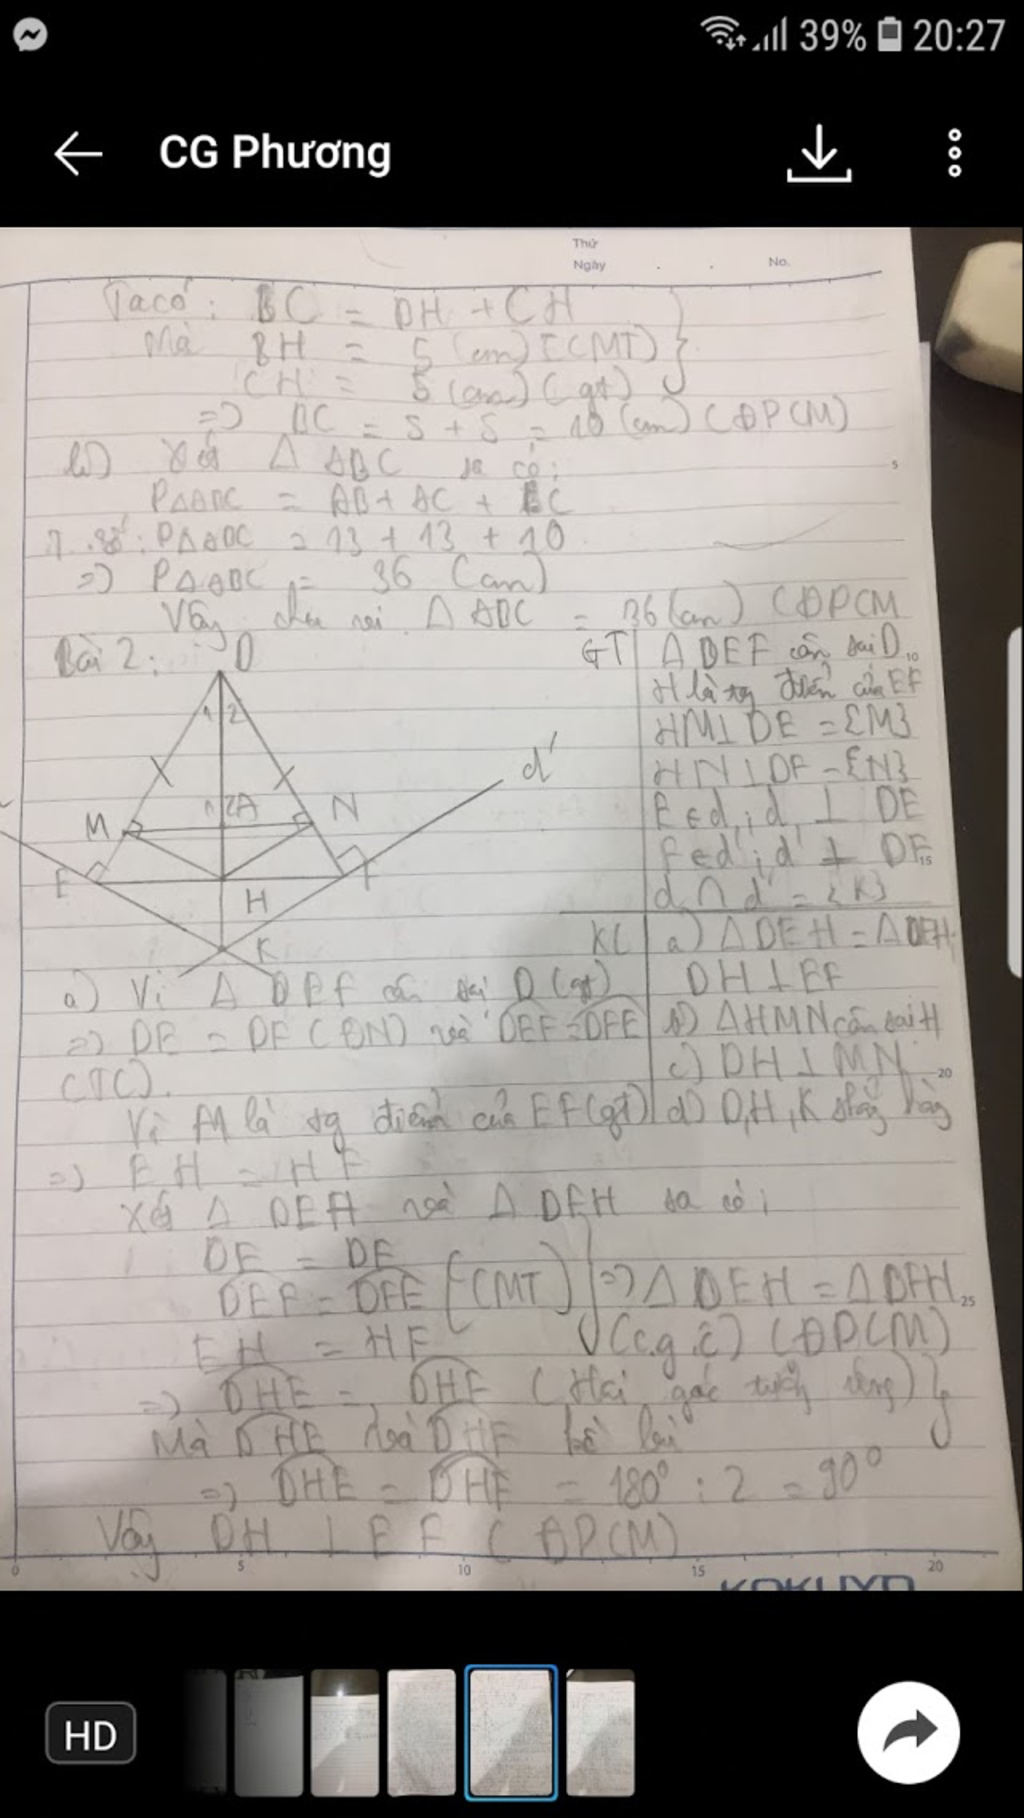 39% 20:27
CG Phương
Thứ
Ngày . . No.
Ta có: BC = BH + CH
Mà BH = 5 (cm) (CMT)
CH = 5 (cm) (gt)
=> BC = 5 + 5 = 10 (cm) (ĐPCM)
b) Xét Δ ABC ta có:
5
PΔABC = AB + AC + BC
PΔABC = 13 + 13 + 10
=> PΔABC = 36 (cm)
Vậy chu vi ΔABC = 36 (cm) (ĐPCM
Bài 2:
D
1 2
M
N
d'
1 2 A
E
F
H
K
GT
Δ DEF cân tại D
10
H là tg điểm của EF
HM⊥DE = {M}
HN⊥DF = {N}
E∈d; d ⊥ DE
F∈d'; d' ⊥ DF
15
d ∩ d' = {K}
KL
a) ΔDEH = ΔDFH
DH⊥EF
b) ΔHMN cân tại H
c) DH⊥MN
20
d) D,H,K thẳng hàng
a) Vì Δ DEF cân tại D (gt)
=> DE = DF (ĐN) và DEF = DFE
(TC).
Vì H là tg điểm của EF (gt)
=> EH = HF
Xét Δ DEH và Δ DFH ta có:
DE = DF
DEF = DFE (CMT) => Δ DEH = Δ DFH
25
EH = HF (c.g.c) (ĐPCM)
=> DHE = DHF (Hai góc tương ứng)
Mà DHE và DHF kề bù
=> DHE = DHF = 180° : 2 = 90°
Vậy DH ⊥ EF (ĐPCM)
0 5 10 15 20
KOKUYO
HD